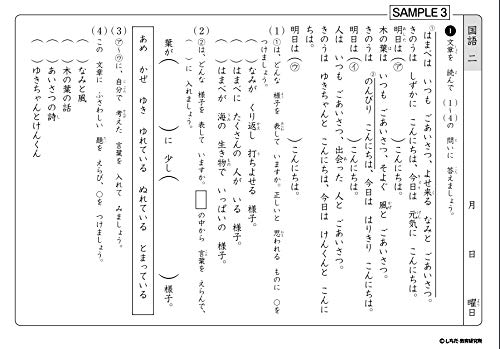 SAMPLE 3
国語 二
月 日 曜日
❶ 文章を 読んで (1)~(4)の 問いに 答えましょう。
①はまべは いつも ごあいさつ、よせ来る なみと ごあいさつ。
きのうは しずかに こんにちは、今日は 元気に こんにちは。
明日は(㋐ )こんにちは。
木の葉は いつも ごあいさつ、そよぐ 風と ごあいさつ。
きのうは ②のんびり こんにちは、今日は はりきり こんにちは。
明日は(㋑ )こんにちは。
人は いつも ごあいさつ、出会った 人と ごあいさつ。
きのうは ゆきちゃんと こんにちは、今日は けんくんと こんに
ちは。
明日は(㋒ )こんにちは。
(1) ①は、どんな 様子を 表して いますか。正しいと 思われる ものに ○を
つけましょう。
( )なみが くり返し 打ちよせる 様子。
( )はまべに たくさんの 人が いる 様子。
( )はまべが 海の 生き物で いっぱいの 様子。
(2) ②は、どんな 様子を 表して いますか。□の中から 言葉を えらんで、
( )に 入れましょう。
葉が( )に 少し( )様子。
あめ かぜ ゆき ゆれている ぬれている とまっている
(3) ㋐~㋒に、自分で 考えた 言葉を 入れて みましょう。
(4) この 文章に ふさわしい 題を えらび、○を つけましょう。
( )なみと風
( )木の葉の話
( )あいさつの詩
( )ゆきちゃんとけんくん
©しちだ・教育研究所